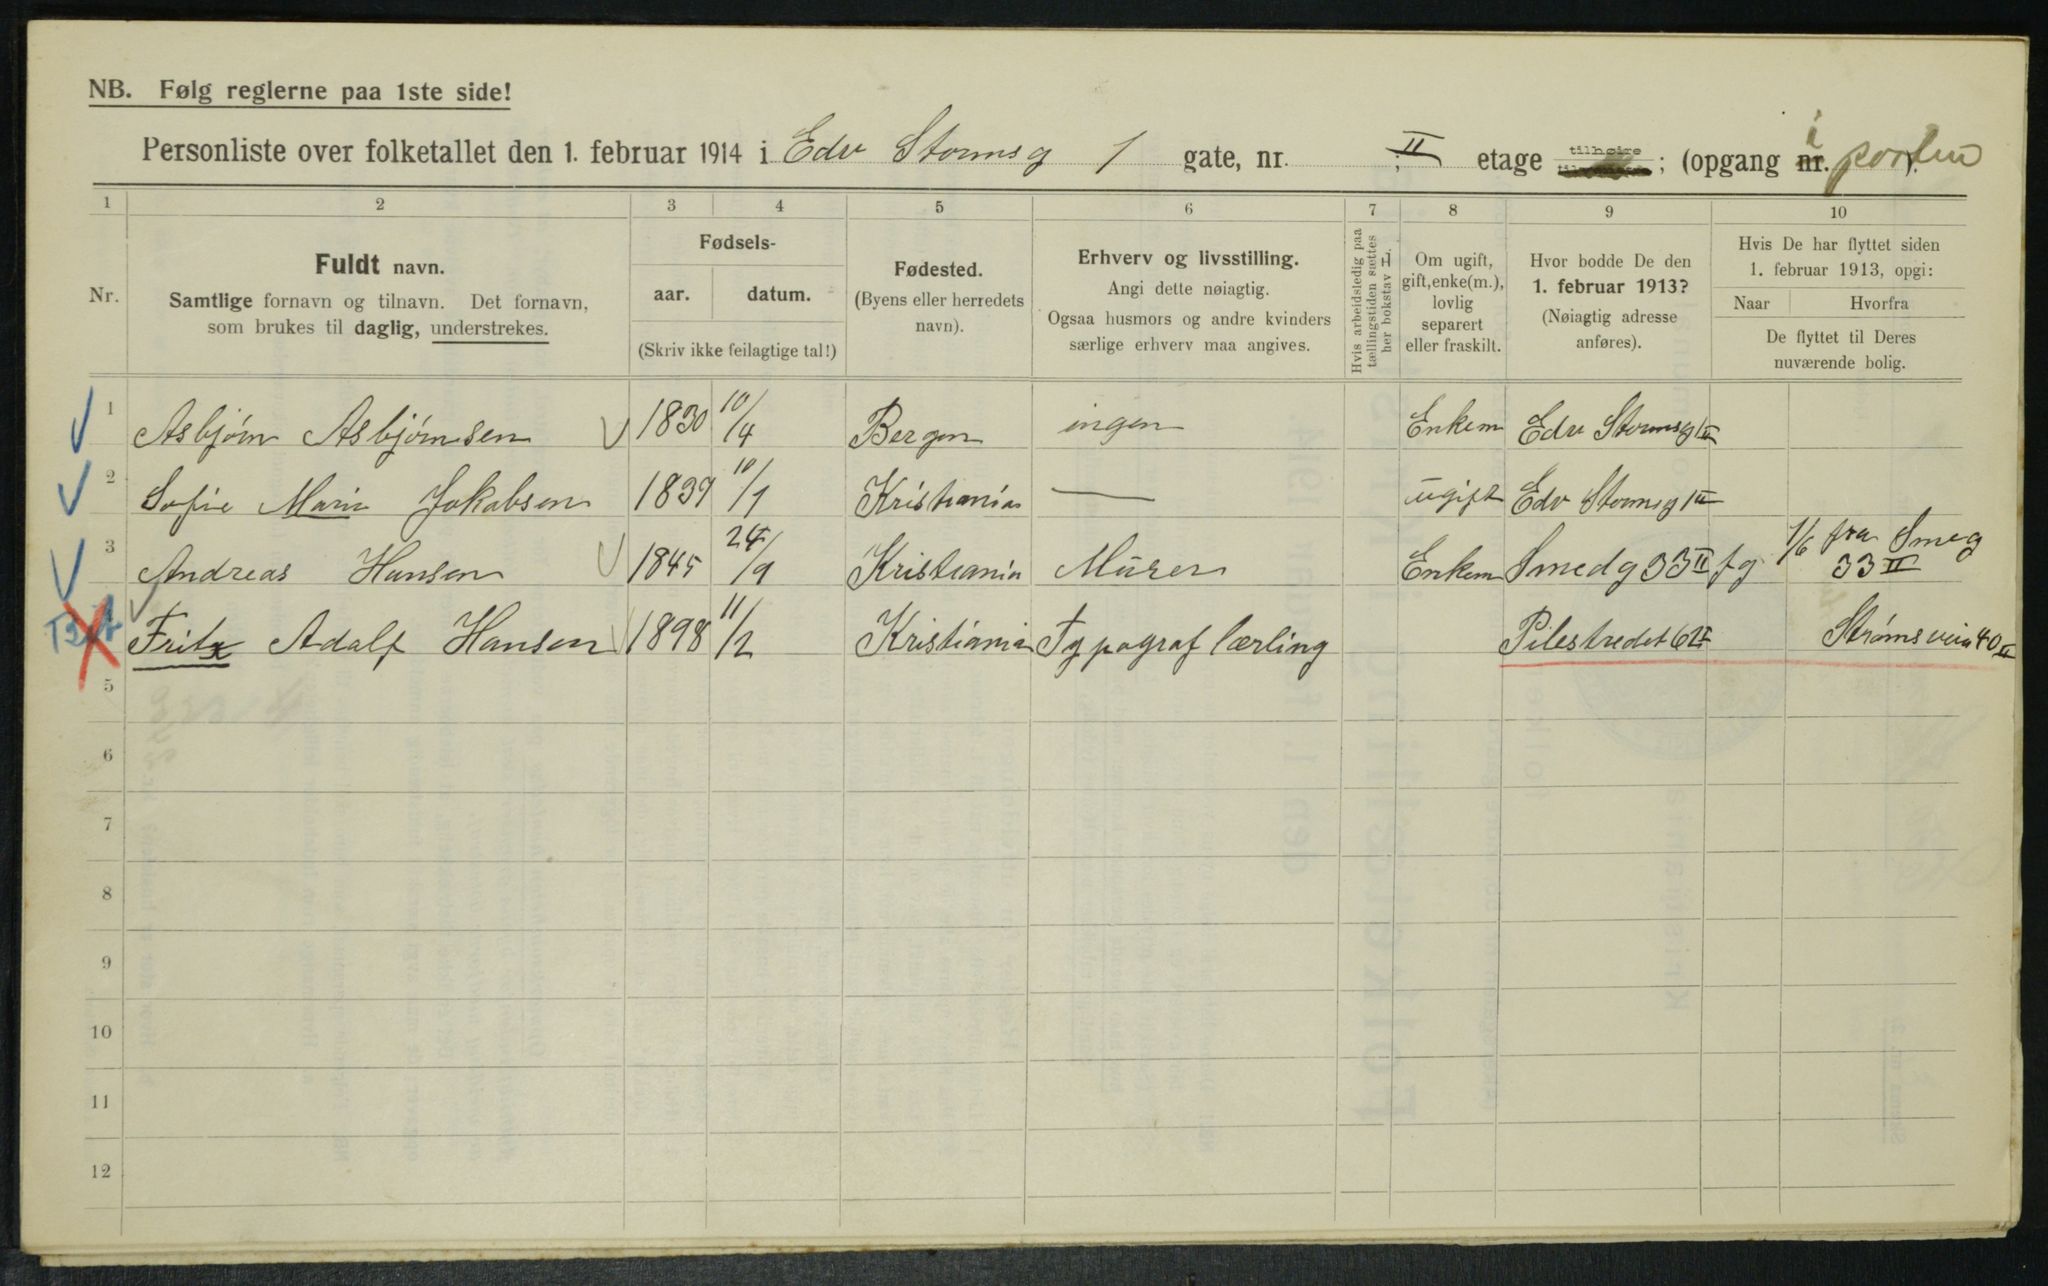 NB. Følg reglerne paa 1ste side!
Personliste over folketallet den 1. februar 1914 i Edv Stormsg 1 gate, nr. ; II etage tilhøire ; (opgang nr. i porten ).
1 2 3 4 5 6 7 8 9 10
Nr.
Fuldt navn.
Samtlige fornavn og tilnavn. Det fornavn,
som brukes til daglig, understrekes.
Fødsels-
aar. datum.
(Skriv ikke feilagtige tal!)
Fødested.
(Byens eller herredets
navn).
Erhverv og livsstilling.
Angi dette nøiagtig.
Ogsaa husmors og andre kvinders
særlige erhverv maa angives.
Hvis arbeidsledig paa
tællingstiden sættes
her bokstav L.
Om ugift,
gift, enke(m.),
lovlig
separert
eller fraskilt.
Hvor bodde De den
1. februar 1913?
(Nøiagtig adresse
anføres).
Hvis De har flyttet siden
1. februar 1913, opgi:
Naar Hvorfra
De flyttet til Deres
nuværende bolig.
1 Asbjørn Asbjørnsen 1830 10/4 Bergen ingen Enkem Edv Stormsg 1 II
2 Sofie Marie Jakobsen 1839 10/1 Kristiania — ugift Edv Stormsg 1 II
3 Andreas Hansen 1845 24/9 Kristiania Murer Enkem Smedg 33 II fg 1/6 fra Smeg
33 II
Fritz Adolf Hansen 1898 11/2 Kristiania Typograf lærling Pilestredet 62 II Strømsveien 40 II
5
6
7
8
9
10
11
12